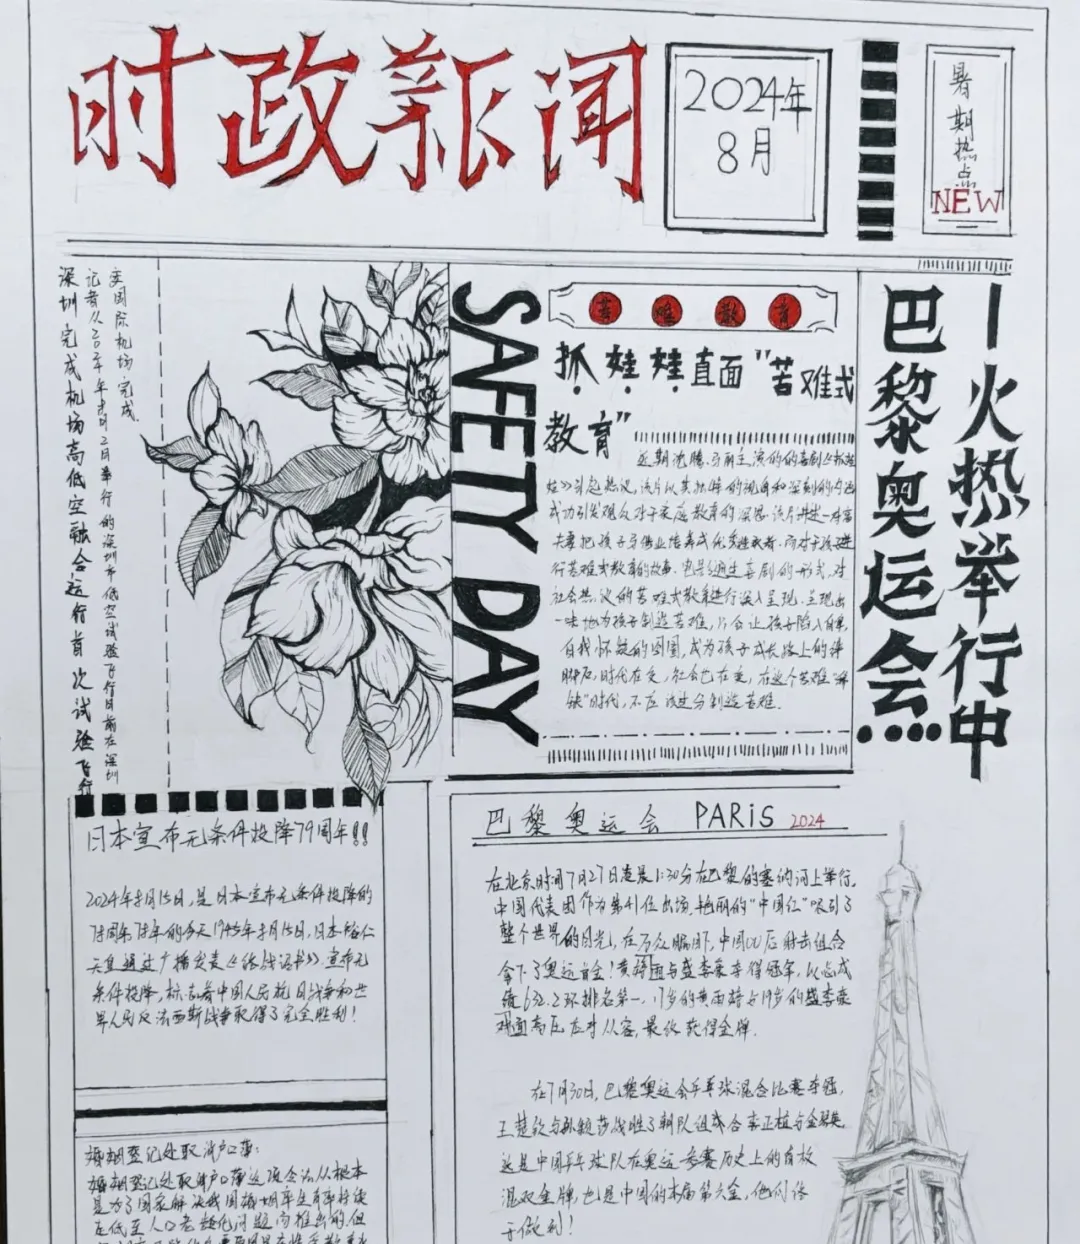 时政新闻
2024年
8月
暑期热点
NEW
深圳完成机场高低空融合运行首次试验飞行
安国际机场完成
SAFETY DAY
苦难教育
抓娃娃直面"苦难式
教育"
近期沈腾、马丽主演的的喜剧《抓娃
娃》引起热议,该片以其独特的视角和深刻的内涵
成功引发观众对于家庭教育的深思.该片讲述一对富
社会热议的苦难式教育进行深入呈现,呈现出
一味地为孩子制造苦难,只会让孩子陷入自卑,
自我怀疑的囹圄,成为孩子成长路上的绊
脚石,时代在变,社会也在变,在这个苦难"稀
缺"时代,不应该过分制造苦难.
巴黎奥运会
一火热举行中
日本宣布无条件投降79周年!!
2024年8月15日,是日本宣布无条件投降的
79周年.79年的今天1945年8月15日,日本裕仁
天皇通过广播发表《终战诏书》.宣布无
条件投降,标志着中国人民抗日战争和世
界人民反法西斯战争取得了完全胜利!
婚姻登记处取消户口簿:
婚姻登记处取消户口簿这项令法从根本
是为了国家解决我国婚姻率生育率持续
走低至人口老龄化问题而推出的.但
巴黎奥运会 PARiS 2024
在北京时间7月27日凌晨1:30分在巴黎的塞纳河上举行.
中国代表团作为第41位出场.艳丽的"中国红"吸引了
整个世界的目光,在万众瞩目下,中国00后射击组合
拿下了奥运首金!黄雨婷与盛李豪夺得冠军,以总成
绩632.2环排名第一.17岁的黄雨婷与19岁的盛李豪
直面高压应对从容,最终获得金牌.
在7月30日,巴黎奥运会乒乓球混合比赛夺冠,
王楚钦与孙颖莎战胜了朝队组合李正植与金琴英.
这是中国乒乓球队在奥运参赛历史上的首枚
混双金牌,也是中国的本届第六金,他们终
于做到!